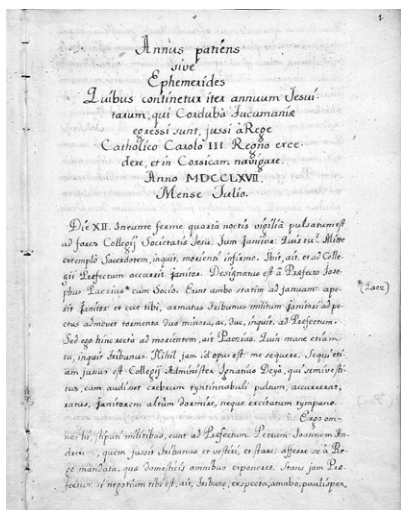 1
Annus patiens
sive
Ephemerides
Quibus continetur iter annuum Jesui-
tarum, qui Cordubâ Tucumaniæ
egressi sunt, jussi à Rege
Catholico Carolo III. Regno exce-
dere, et in Corsicam navigare.
Anno MDCCLXVII.
Mense Julio.
Die XII. Ineunte ferme quartâ noctis vigiliâ pulsatum est
ad fores Collegij Societatis Jesu. Tum Janitor: Quis tu? Mitte
extemplo Sacerdotem, inquit, morienti infirmo. Ibit, ait, et ad Colle-
gii Præfectum accurrit Janitor. Designatus est à Præfecto Jose-
phus Paezius cum Socio. Eunt ambo statim ad januam: ape-
rit Janitor et ecce tibi, armatus Tribunus militum janitori ad pe-
ctus admovet tormenta duo minora, ac, duc, inquit, ad Præfectum.
Sed ego hinc recta ad morientem, ait Paezius. Quin mane etiam
tu, inquit Tribunus. Nihil jam id opus est: me sequere. Sequi eti-
am jussus est Collegij Administer Ignatius Deyà, qui semivesti-
tus, cum audisset crebrum tyntinnabuli pulsum, accurrerat,
ratus, Janitorem altum dormire, neque excitatum tympano.
Ergo om-
nes hi, stipati militibus, eunt ad Præfectum Petrum Joannem An-
dreu, quem jussit Tribunus et vestiri, et stare: afferre se à Re-
ge mandata, quæ domesticis omnibus exponeret. Stans jam Præ-
fectus: si negotium tibi est, ait, Tribune, exspecta, amabo, paulisper
(Paez)